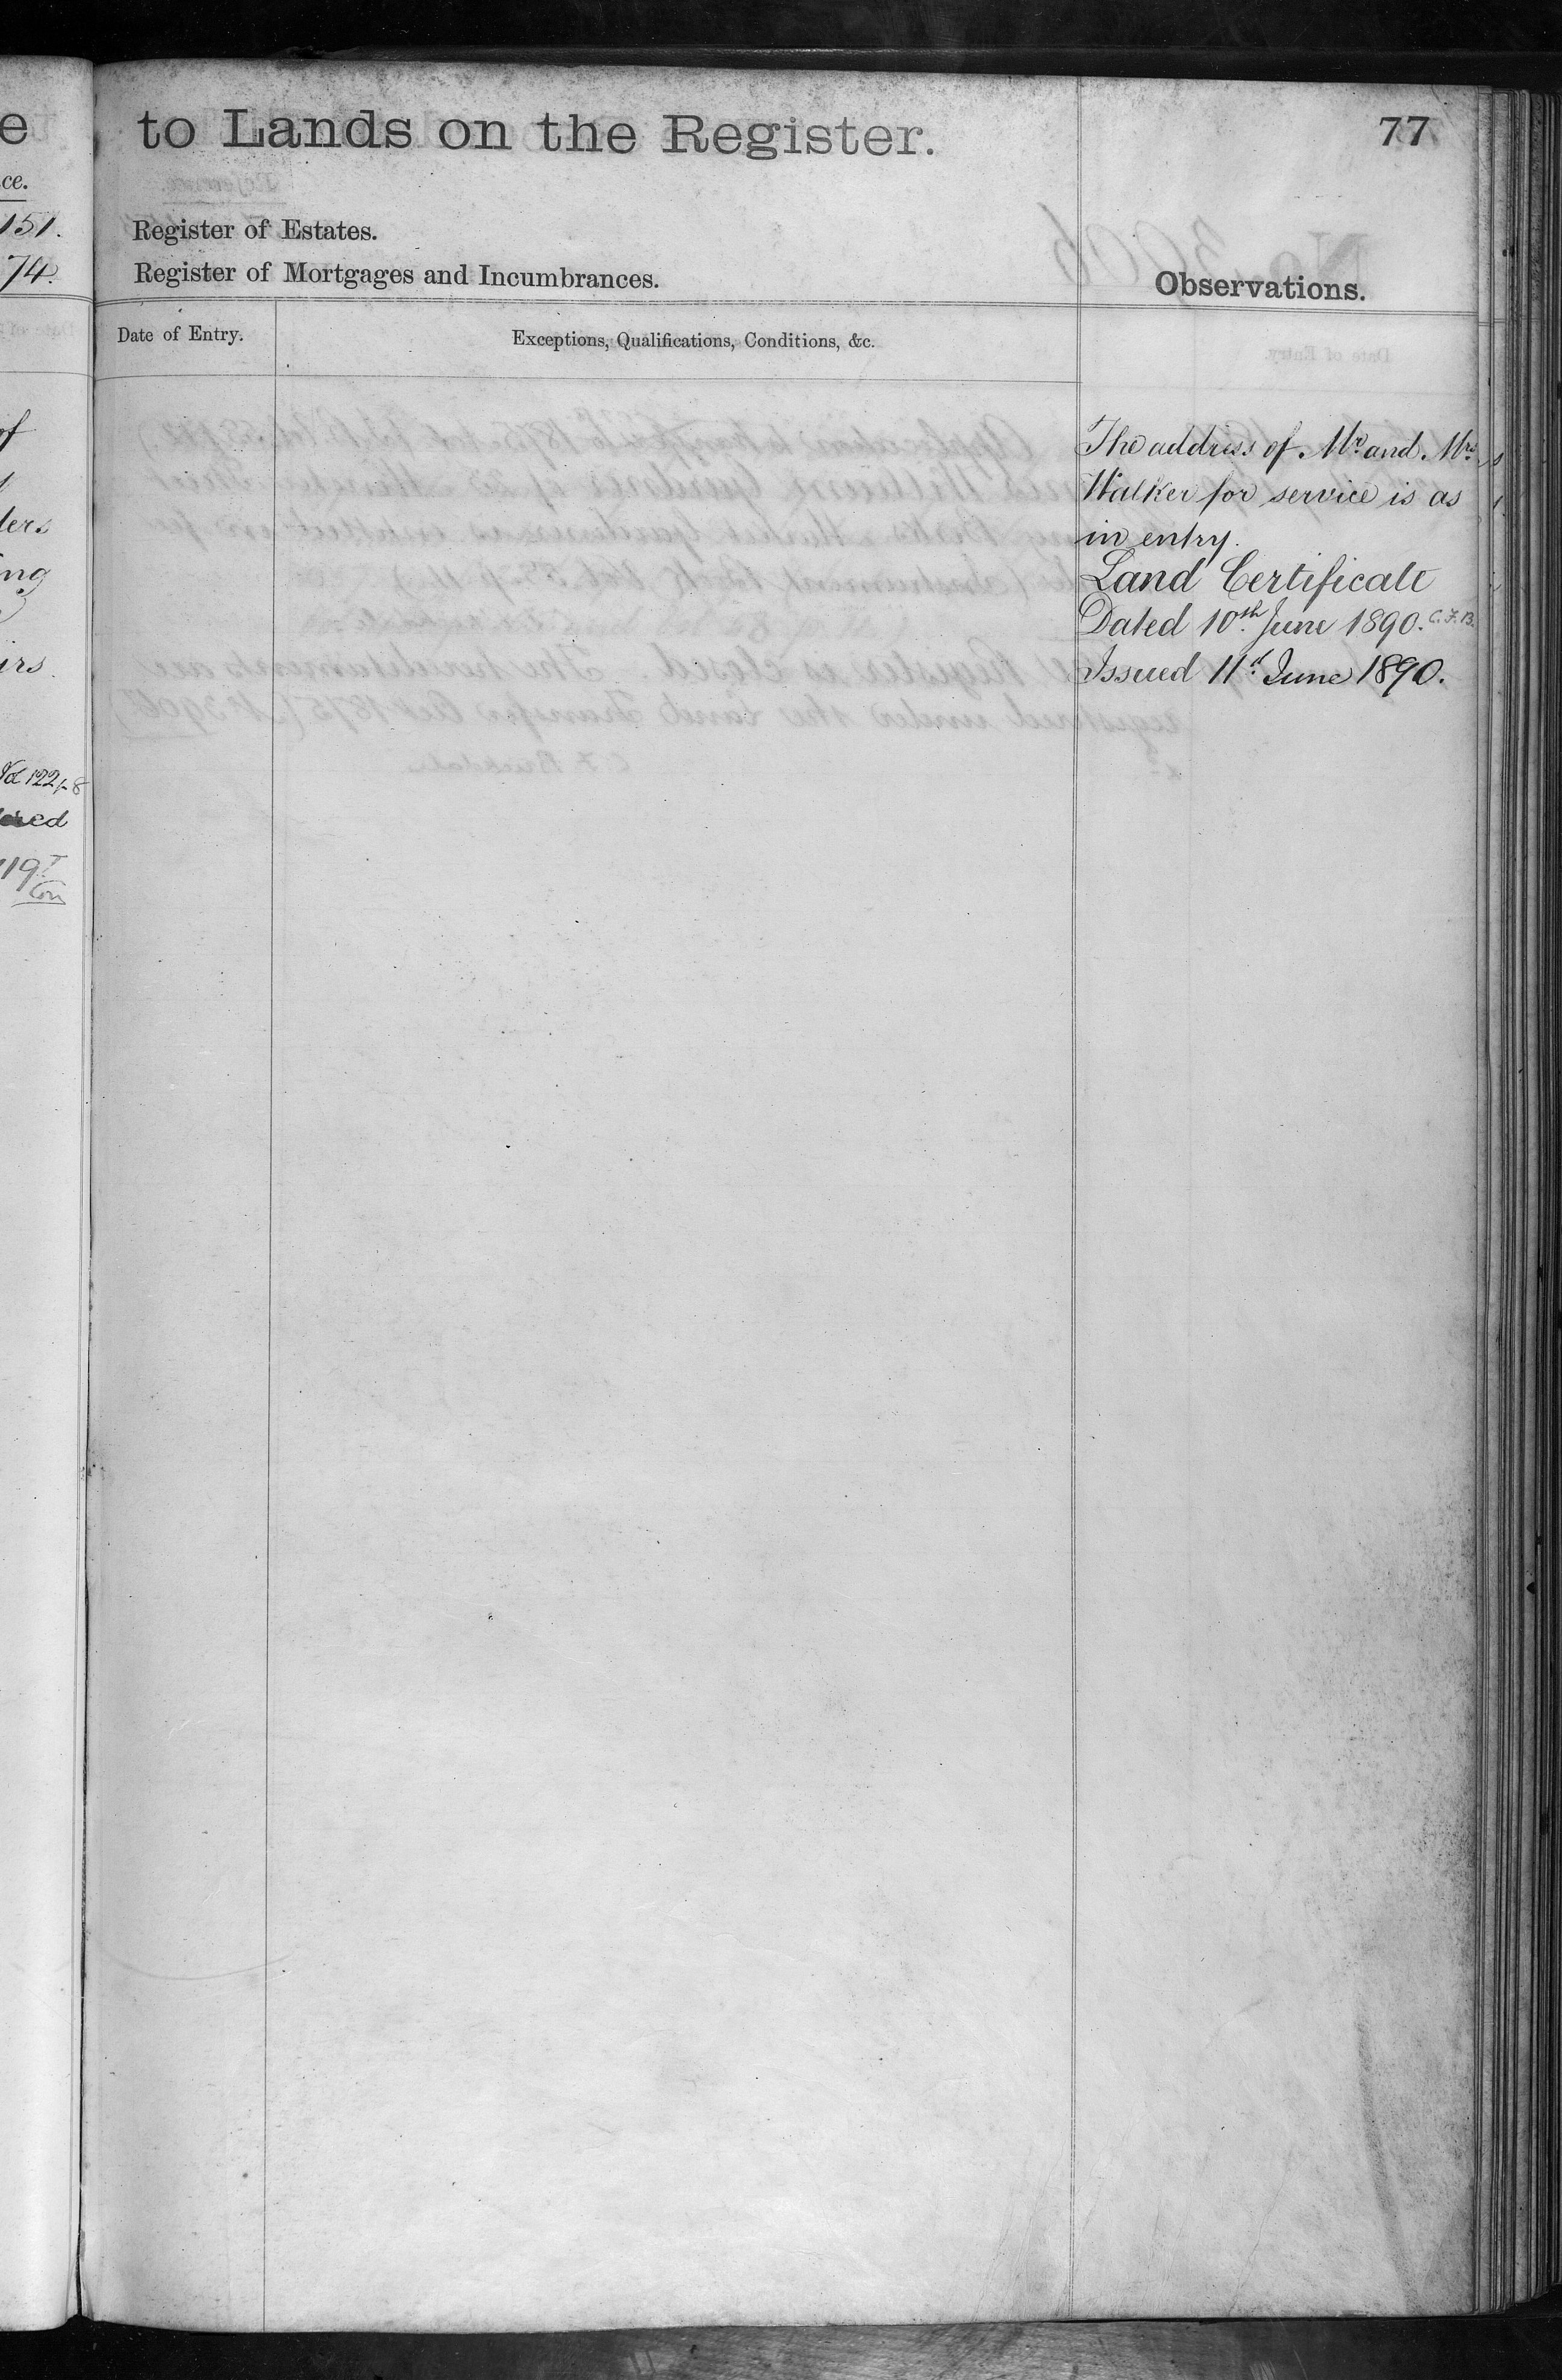 e
ce.
151.
74.
of
ders
ng
irs
Vol 122 p 8
ered
119
Con
to Lands on the Register.
77
Register of Estates.
Register of Mortgages and Incumbrances.
Observations.
Date of Entry.
Exceptions, Qualifications, Conditions, &c.
The address of Mr. and Mrs.
Walker for service is as
in entry.
Land Certificate
Dated 10th June 1890. C.F.B.
Issued 11th June 1890.